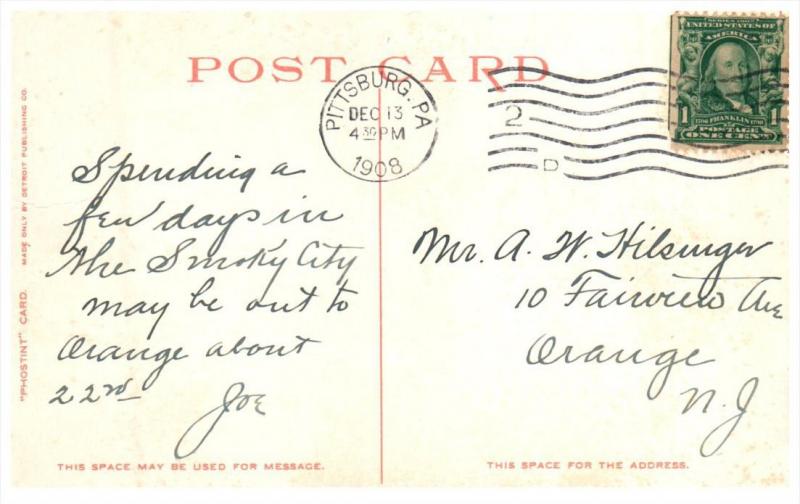 POST CARD
PITTSBURG, PA
DEC 13
4 30 PM
1908
2
D
SERIES 1902
UNITED STATES OF
AMERICA
1 FRANKLIN 1
POSTAGE
ONE CENT
"PHOSTINT" CARD. MADE ONLY BY DETROIT PUBLISHING CO.
Spending a
few days in
the Smoky City
may be out to
Orange about
22nd Joe
Mr. A. W. Hilsinger
10 Fairview Ave
Orange
N.J
THIS SPACE MAY BE USED FOR MESSAGE.
THIS SPACE FOR THE ADDRESS.